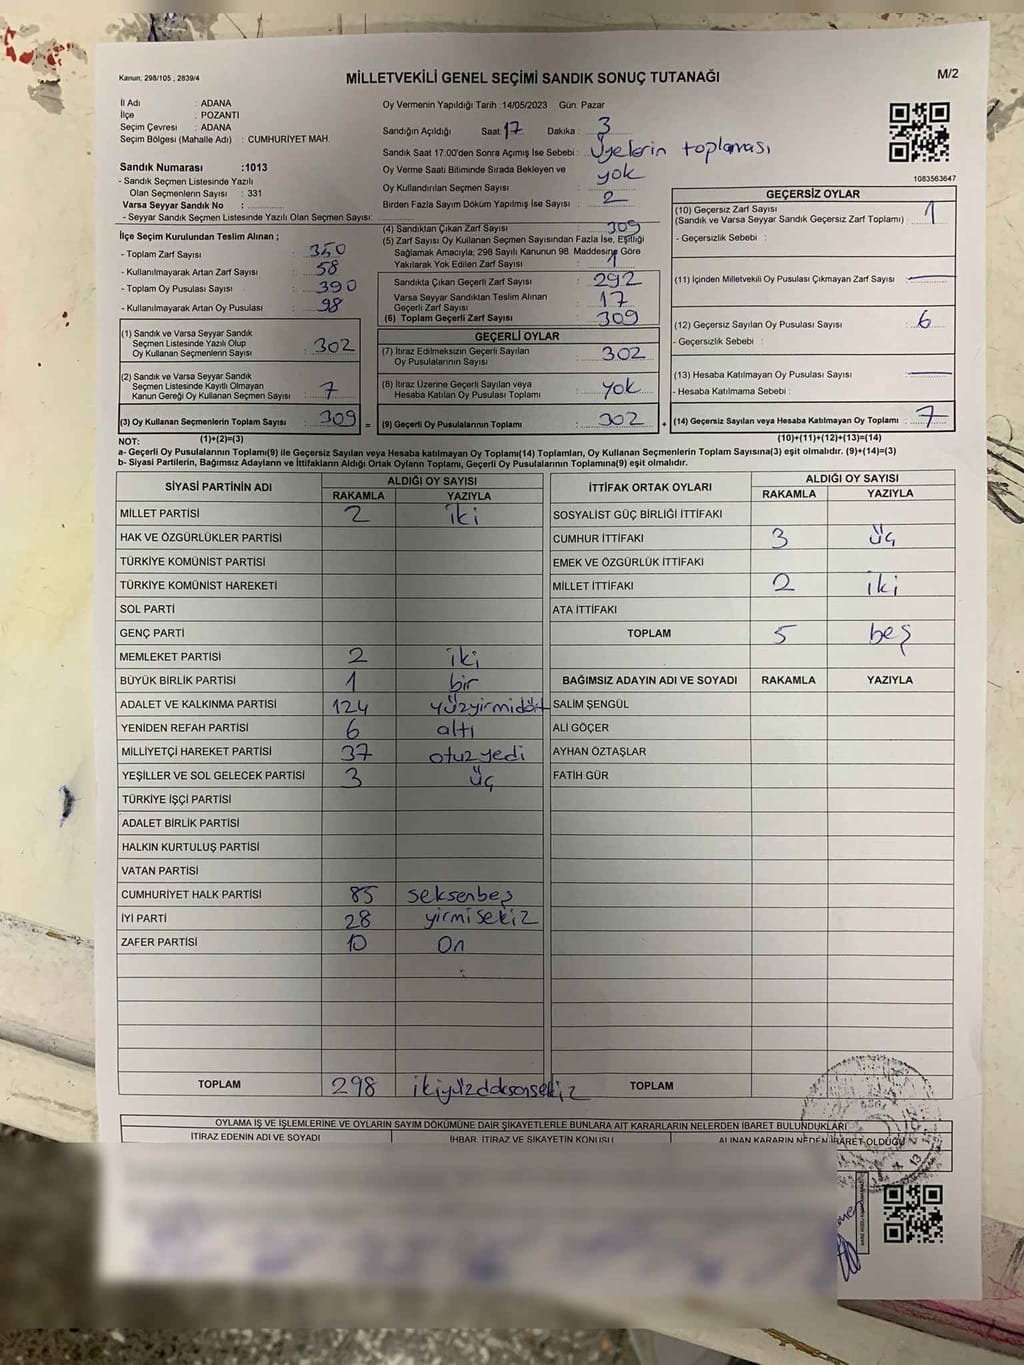 Kanun: 298/105 , 2839/4
MİLLETVEKİLİ GENEL SEÇİMİ SANDIK SONUÇ TUTANAĞI
M/2
İl Adı : ADANA
İlçe : POZANTI
Seçim Çevresi : ADANA
Seçim Bölgesi (Mahalle Adı) : CUMHURİYET MAH.
Sandık Numarası :1013
- Sandık Seçmen Listesinde Yazılı
Olan Seçmenlerin Sayısı : 331
Varsa Seyyar Sandık No :
- Seyyar Sandık Seçmen Listesinde Yazılı Olan Seçmen Sayısı:
Oy Vermenin Yapıldığı Tarih :14/05/2023 Gün: Pazar
Sandığın Açıldığı Saat: 17 Dakika : 3
Sandık Saat 17:00'den Sonra Açımış İse Sebebi : Üyelerin toplaması
Oy Verme Saati Bitiminde Sırada Bekleyen ve
Oy Kullandırılan Seçmen Sayısı : yok
Birden Fazla Sayım Döküm Yapılmış İse Sayısı : 2
1083563647
İlçe Seçim Kurulundan Teslim Alınan ;
- Toplam Zarf Sayısı : 350
- Kullanılmayarak Artan Zarf Sayısı : 58
- Toplam Oy Pusulası Sayısı : 390
- Kullanılmayarak Artan Oy Pusulası : 98
(1) Sandık ve Varsa Seyyar Sandık
Seçmen Listesinde Yazılı Olup
Oy Kullanan Seçmenlerin Sayısı : 302
(2) Sandık ve Varsa Seyyar Sandık
Seçmen Listesinde Kayıtlı Olmayan
Kanun Gereği Oy Kullanan Seçmen Sayısı : 7
(3) Oy Kullanan Seçmenlerin Toplam Sayısı : 309 =
(4) Sandıktan Çıkan Zarf Sayısı : 309
(5) Zarf Sayısı Oy Kullanan Seçmen Sayısından Fazla İse, Eşitliği
Sağlamak Amacıyla; 298 Sayılı Kanunun 98. Maddesine Göre
Yakılarak Yok Edilen Zarf Sayısı : 1
Sandıkta Çıkan Geçerli Zarf Sayısı : 292
Varsa Seyyar Sandıktan Teslim Alınan
Geçerli Zarf Sayısı : 17
(6) Toplam Geçerli Zarf Sayısı : 309
GEÇERLİ OYLAR
(7) İtiraz Edilmeksizin Geçerli Sayılan
Oy Pusulalarının Sayısı : 302
(8) İtiraz Üzerine Geçerli Sayılan veya
Hesaba Katılan Oy Pusulası Toplamı : yok
(9) Geçerli Oy Pusulalarının Toplamı : 302 +
GEÇERSİZ OYLAR
(10) Geçersiz Zarf Sayısı
(Sandık ve Varsa Seyyar Sandık Geçersiz Zarf Toplamı) : 1
- Geçersizlik Sebebi :
(11) İçinden Milletvekili Oy Pusulası Çıkmayan Zarf Sayısı :
(12) Geçersiz Sayılan Oy Pusulası Sayısı : 6
- Geçersizlik Sebebi :
(13) Hesaba Katılmayan Oy Pusulası Sayısı :
- Hesaba Katılmama Sebebi :
(14) Geçersiz Sayılan veya Hesaba Katılmayan Oy Toplamı : 7
NOT: (1)+(2)=(3)
(10)+(11)+(12)+(13)=(14)
a- Geçerli Oy Pusulaların Toplamı(9) ile Geçersiz Sayılan veya Hesaba katılmayan Oy Toplamı(14) Toplamları, Oy Kullanan Seçmenlerin Toplam Sayısına(3) eşit olmalıdır. (9)+(14)=(3)
b- Siyasi Partilerin, Bağımsız Adayların ve İttifakların Aldığı Ortak Oyların Toplamı, Geçerli Oy Pusulalarının Toplamına(9) eşit olmalıdır.
SİYASİ PARTİNİN ADI ALDIĞI OY SAYISI
RAKAMLA YAZIYLA
MİLLET PARTİSİ 2 iki
HAK VE ÖZGÜRLÜKLER PARTİSİ
TÜRKİYE KOMÜNİST PARTİSİ
TÜRKİYE KOMÜNİST HAREKETİ
SOL PARTİ
GENÇ PARTİ
MEMLEKET PARTİSİ 2 iki
BÜYÜK BİRLİK PARTİSİ 1 bir
ADALET VE KALKINMA PARTİSİ 124 yüzyirmidört
YENİDEN REFAH PARTİSİ 6 altı
MİLLİYETÇİ HAREKET PARTİSİ 37 otuzyedi
YEŞİLLER VE SOL GELECEK PARTİSİ 3 üç
TÜRKİYE İŞÇİ PARTİSİ
ADALET BİRLİK PARTİSİ
HALKIN KURTULUŞ PARTİSİ
VATAN PARTİSİ
CUMHURİYET HALK PARTİSİ 85 seksenbeş
İYİ PARTİ 28 yirmisekiz
ZAFER PARTİSİ 10 On
TOPLAM 298 ikiyüzdoksansekiz
İTTİFAK ORTAK OYLARI ALDIĞI OY SAYISI
RAKAMLA YAZIYLA
SOSYALİST GÜÇ BİRLİĞİ İTTİFAKI
CUMHUR İTTİFAKI 3 üç
EMEK VE ÖZGÜRLÜK İTTİFAKI
MİLLET İTTİFAKI 2 iki
ATA İTTİFAKI
TOPLAM 5 beş
BAĞIMSIZ ADAYIN ADI VE SOYADI RAKAMLA YAZIYLA
SALİM ŞENGÜL
ALİ GÖÇER
AYHAN ÖZTAŞLAR
FATİH GÜR
TOPLAM
OYLAMA İŞ VE İŞLEMLERİNE VE OYLARIN SAYIM DÖKÜMÜNE DAİR ŞİKAYETLERLE BUNLARA AİT KARARLARIN NELERDEN İBARET BULUNDUKLARI
İTİRAZ EDENİN ADI VE SOYADI İHBAR, İTİRAZ VE ŞİKAYETİN KONUSU ALINAN KARARIN NEDEN İBARET OLDUĞU